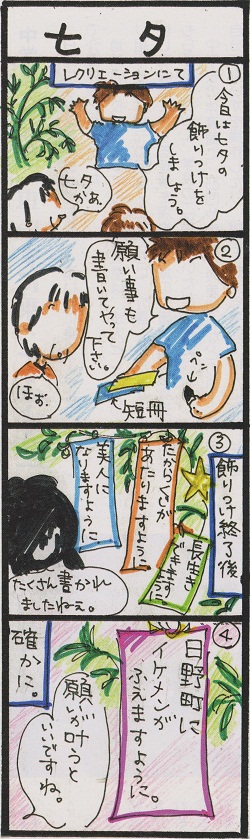 七夕
①
レクリエーションにて
今日は七夕の
飾りつけを
しましょう。
七夕
かぁ。
②
願い事も
書いてやって
下さい。
ほぉ。
短冊
③
飾りつけ終了後
長生き
できますように
たからくじが
あたりますように
美人に
なりますように
たくさん書かれ
ましたねぇ。
④
日野町に
イケメンが
ふえますように。
願いが叶うと
いいですね。
確かに。